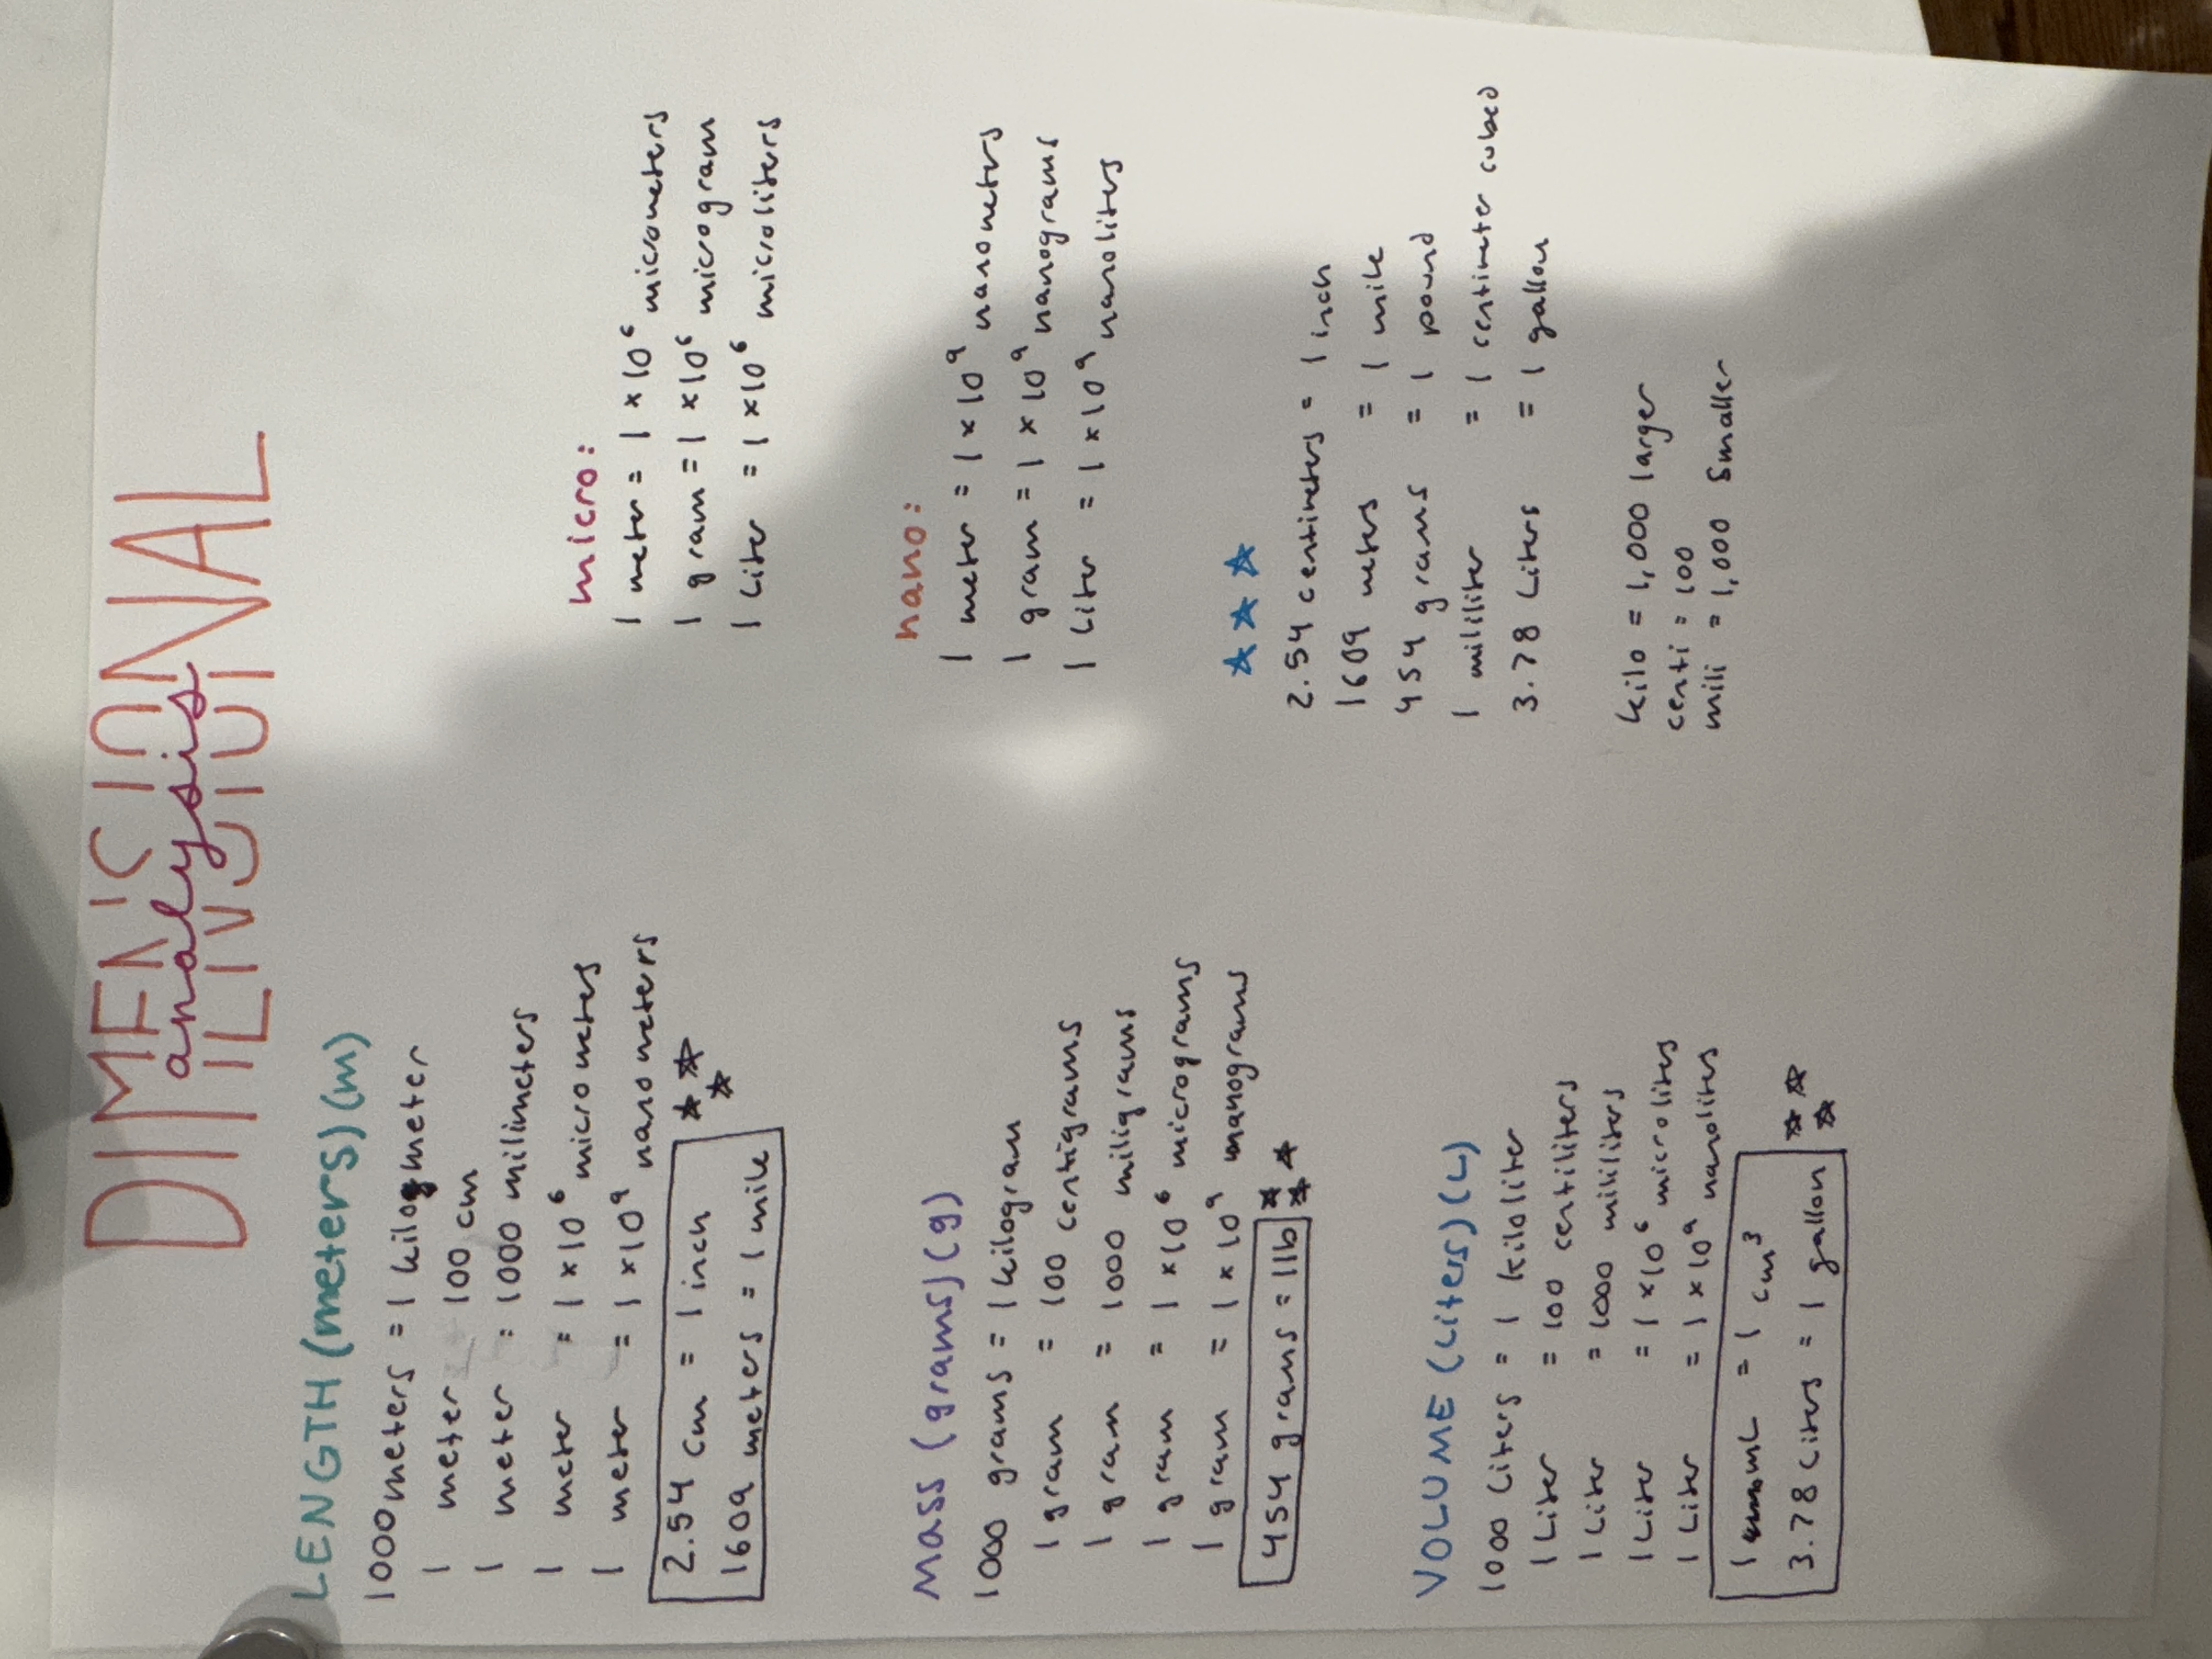 DIMENSIONAL
analysis
LENGTH (meters) (m)
1000 meters = 1 kilometer
1 meter 100 cm
1 meter = 1000 milimeters
1 meter = 1 x 10⁶ micrometes
1 meter = 1 x 10⁹ nanometers
2.54 cm = 1 inch
1609 meters = 1 mile
MASS (grams) (g)
1000 grams = 1 kilogram
1 gram = 100 centigrams
1 gram = 1000 miligrams
1 gram = 1 x 10⁶ micrograms
1 gram = 1 x 10⁹ nanograms
454 grams = 1 lb
VOLUME (Liters) (L)
1000 Liters = 1 kiloliter
1 Liter = 100 centiliters
1 Liter = 1000 mililiters
1 Liter = 1 x 10⁶ microlites
1 Liter = 1 x 10⁹ nanolites
1 mL = 1 cm³
3.78 Liters = 1 gallon
micro:
1 meter = 1 x 10⁶ micrometers
1 gram = 1 x 10⁶ microgram
1 Liter = 1 x 10⁶ microliters
nano:
1 meter = 1 x 10⁹ nanometers
1 gram = 1 x 10⁹ nanograms
1 Liter = 1 x 10⁹ nanoliters
2.54 centimeters = 1 inch
1609 meters = 1 mile
454 grams = 1 pound
1 mililiter = 1 centimeter cubed
3.78 Liters = 1 gallon
kilo = 1,000 larger
centi = 100
mili = 1,000 smaller